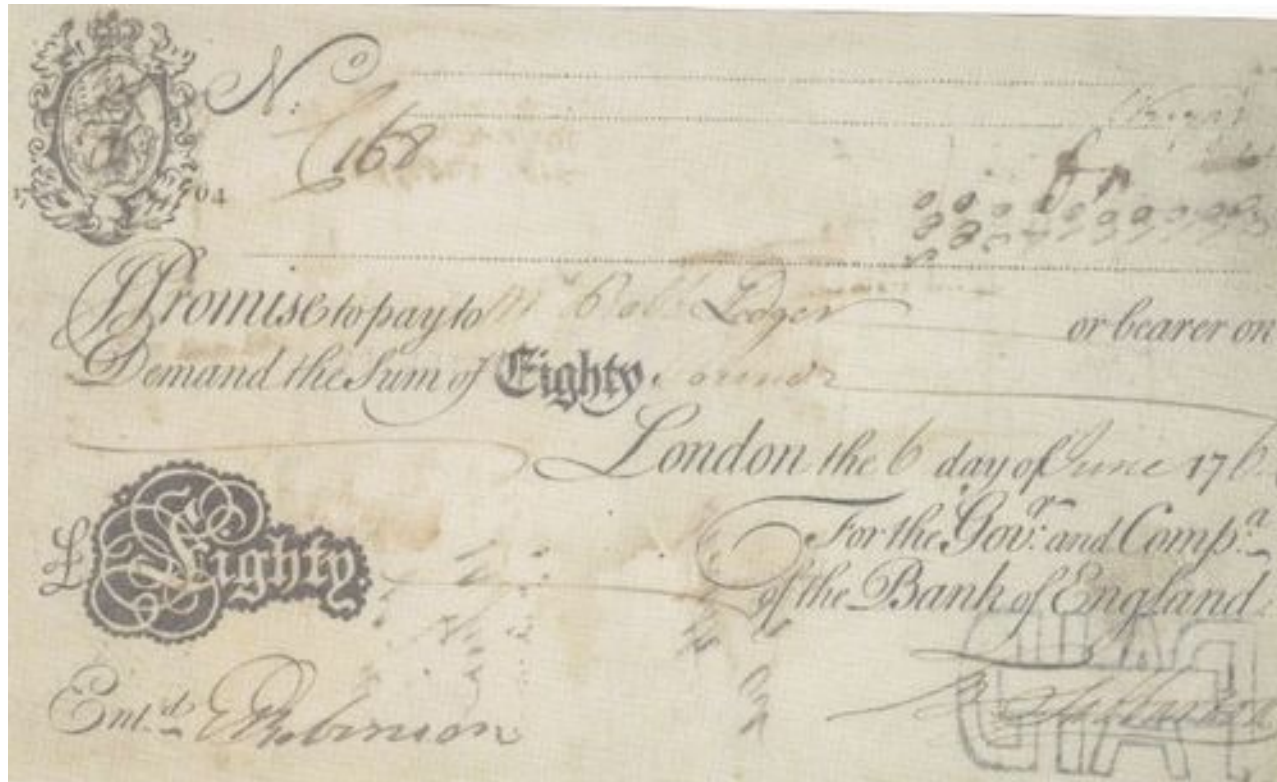 No
C 168
1704
I Promise to pay to Mr Ledger or bearer on
Demand the Sum of Eighty Pounds
London the 6 day of June 176
For the Govr. and Compa.
of the Bank of England.
£ Eighty.
Entd. Robinson